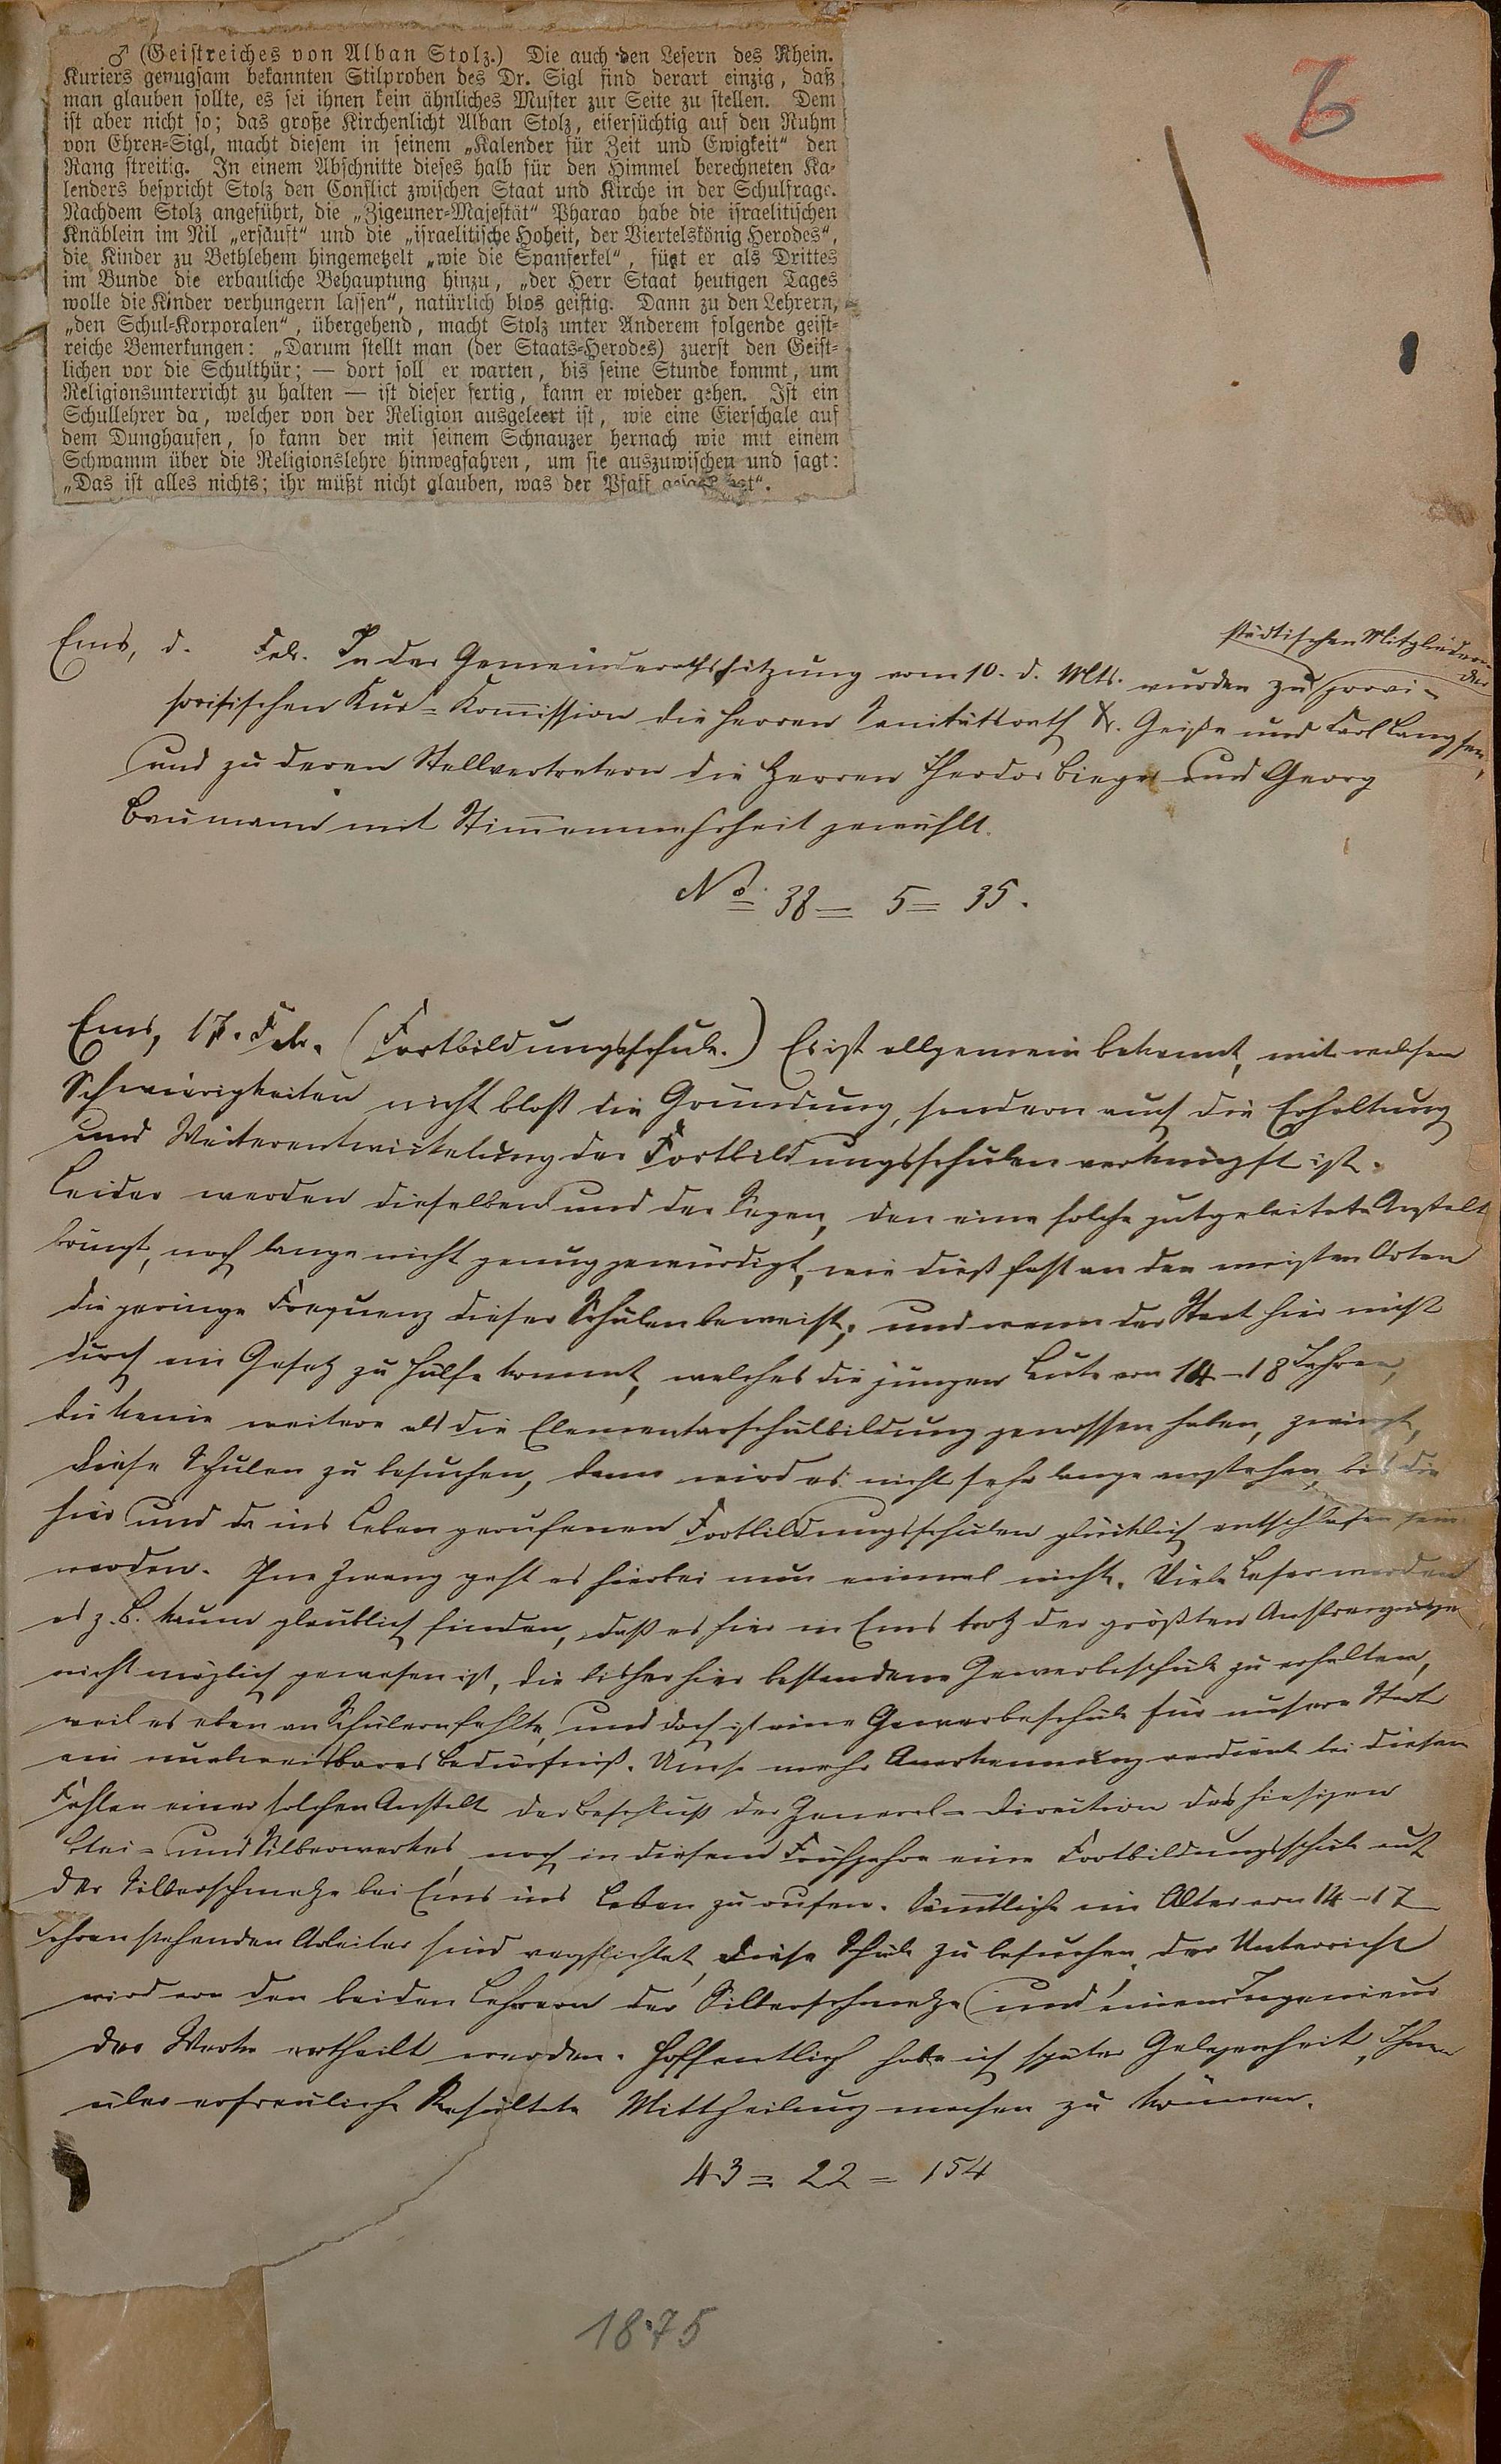 ♂ (Geistreiches von Alban Stolz.) Die auch den Lesern des Rhein.
Kuriers genugsam bekannten Stilproben des Dr. Sigl sind derart einzig, daß
man glauben sollte, es sei ihnen kein ähnliches Muster zur Seite zu stellen. Dem
ist aber nicht so; das große Kirchenlicht Alban Stolz, eifersüchtig auf den Ruhm
von Ehren-Sigl, macht diesem in seinem „Kalender für Zeit und Ewigkeit“ den
Rang streitig. In einem Abschnitte dieses halb für den Himmel berechneten Ka-
lenders bespricht Stolz den Conflict zwischen Staat und Kirche in der Schulfrage.
Nachdem Stolz angeführt, die „Zigeuner-Majestät“ Pharao habe die israelitischen
Knäblein im Nil „ersäuft“ und die „israelitische Hoheit, der Viertelskönig Herodes“,
die Kinder zu Bethlehem hingemetzelt „wie die Spanferkel“, fügt er als Drittes
im Bunde die erbauliche Behauptung hinzu, „der Herr Staat heutigen Tages
wolle die Kinder verhungern lassen“, natürlich blos geistig. Dann zu den Lehrern,
„den Schul-Korporalen“, übergehend, macht Stolz unter Anderem folgende geist-
reiche Bemerkungen: „Darum stellt man (der Staats-Herodes) zuerst den Geist-
lichen vor die Schulthür; — dort soll er warten, bis seine Stunde kommt, um
Religionsunterricht zu halten — ist dieser fertig, kann er wieder gehen. Ist ein
Schullehrer da, welcher von der Religion ausgeleert ist, wie eine Eierschale auf
dem Dunghaufen, so kann der mit seinem Schnauzer hernach wie mit einem
Schwamm über die Religionslehre hinwegfahren, um sie auszuwischen und sagt:
„Das ist alles nichts; ihr müßt nicht glauben, was der Pfaff gesagt hat“.
6
städtischen Mitgliedern
der
Ems, d. Feb. In der Gemeinderathssitzung vom 10. d. Mts. wurden zu provi-
sorischen Kur-Kommission die Herren Sanitätsrath Dr. Geiße und Karl
und zu deren Stellvertretern die Herren Theodor Bieger und Georg
Baumann mit Stimmenmehrheit gewählt.
No. 38 = 5 = 35.
Ems, 17. Feb. (Fortbildungsschule.) Es ist allgemein bekannt, mit welchen
Schwierigkeiten nicht bloß die Gründung, sondern auch die Erhaltung
und Weiterentwickelung der Fortbildungsschulen verknüpft ist.
Leider werden dieselben und der Segen, den eine solche gutgeleitete Anstalt
bringt, noch lange nicht genug gewürdigt, wie dieß fast an den meisten Orten
die geringe Frequenz dieser Schulen beweist, und wenn der Staat hier nicht
durch ein Gesetz zu Hülfe kommt, welches die jungen Leute von 14-18 Jahren,
die keine weitere als die Elementarschulbildung genossen haben, zwingt,
diese Schulen zu besuchen, dann wird es nicht sehr lange anstehen, bis die
hier und da ins Leben gerufenen Fortbildungsschulen glücklich entschlafen sein
werden. Ohne Zwang geht es hierbei nun einmal nicht. Viele Leser werden
es z. B. kaum glaublich finden, daß es hier in Ems trotz der größten Anstrengungen
nicht möglich gewesen ist, die bisher hier bestandene Gewerbeschule zu erhalten,
weil es eben an Schülern fehlte, und doch ist eine Gewerbeschule für unsere Stadt
ein unabweisbares Bedürfniß. Umso mehr Anerkennung verdient bei diesem
Fehlen einer solchen Anstalt der Beschluß der General-Direction des hiesigen
Blei- und Silberwerkes, noch in diesem Frühjahre eine Fortbildungsschule auf
der Silberschmelze bei Ems ins Leben zu rufen. Sämtliche im Alter von 14-17
Jahren stehenden Arbeiter sind verpflichtet, diese Schule zu besuchen. Der Unterricht
wird von den beiden Lehrern der Silberschmelze und einem Ingenieur
des Werkes ertheilt werden. Hoffentlich habe ich später Gelegenheit, Ihnen
über erfreuliche Resultate Mittheilung machen zu können.
43 = 22 = 154
1875